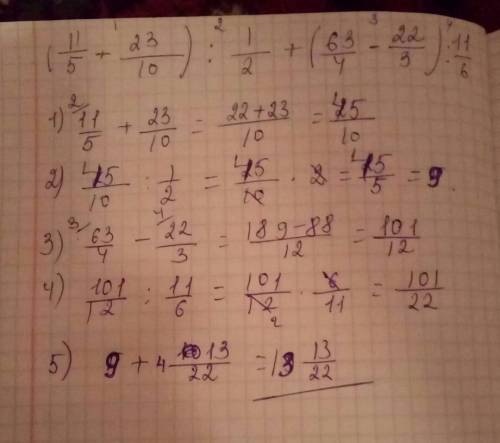 (11/5 + 23/10) : 1/2 + (63/4 - 22/3) : 11/6
1) 11/5 + 23/10 = 22+23/10 = 45/10
2) 45/10 : 1/2 = 45/10 · 2 = 45/5 = 9.
3) 63/4 - 22/3 = 189-88/12 = 101/12
4) 101/12 : 11/6 = 101/12 · 6/11 = 101/22
5) 9 + 4 13/22 = 13 13/22